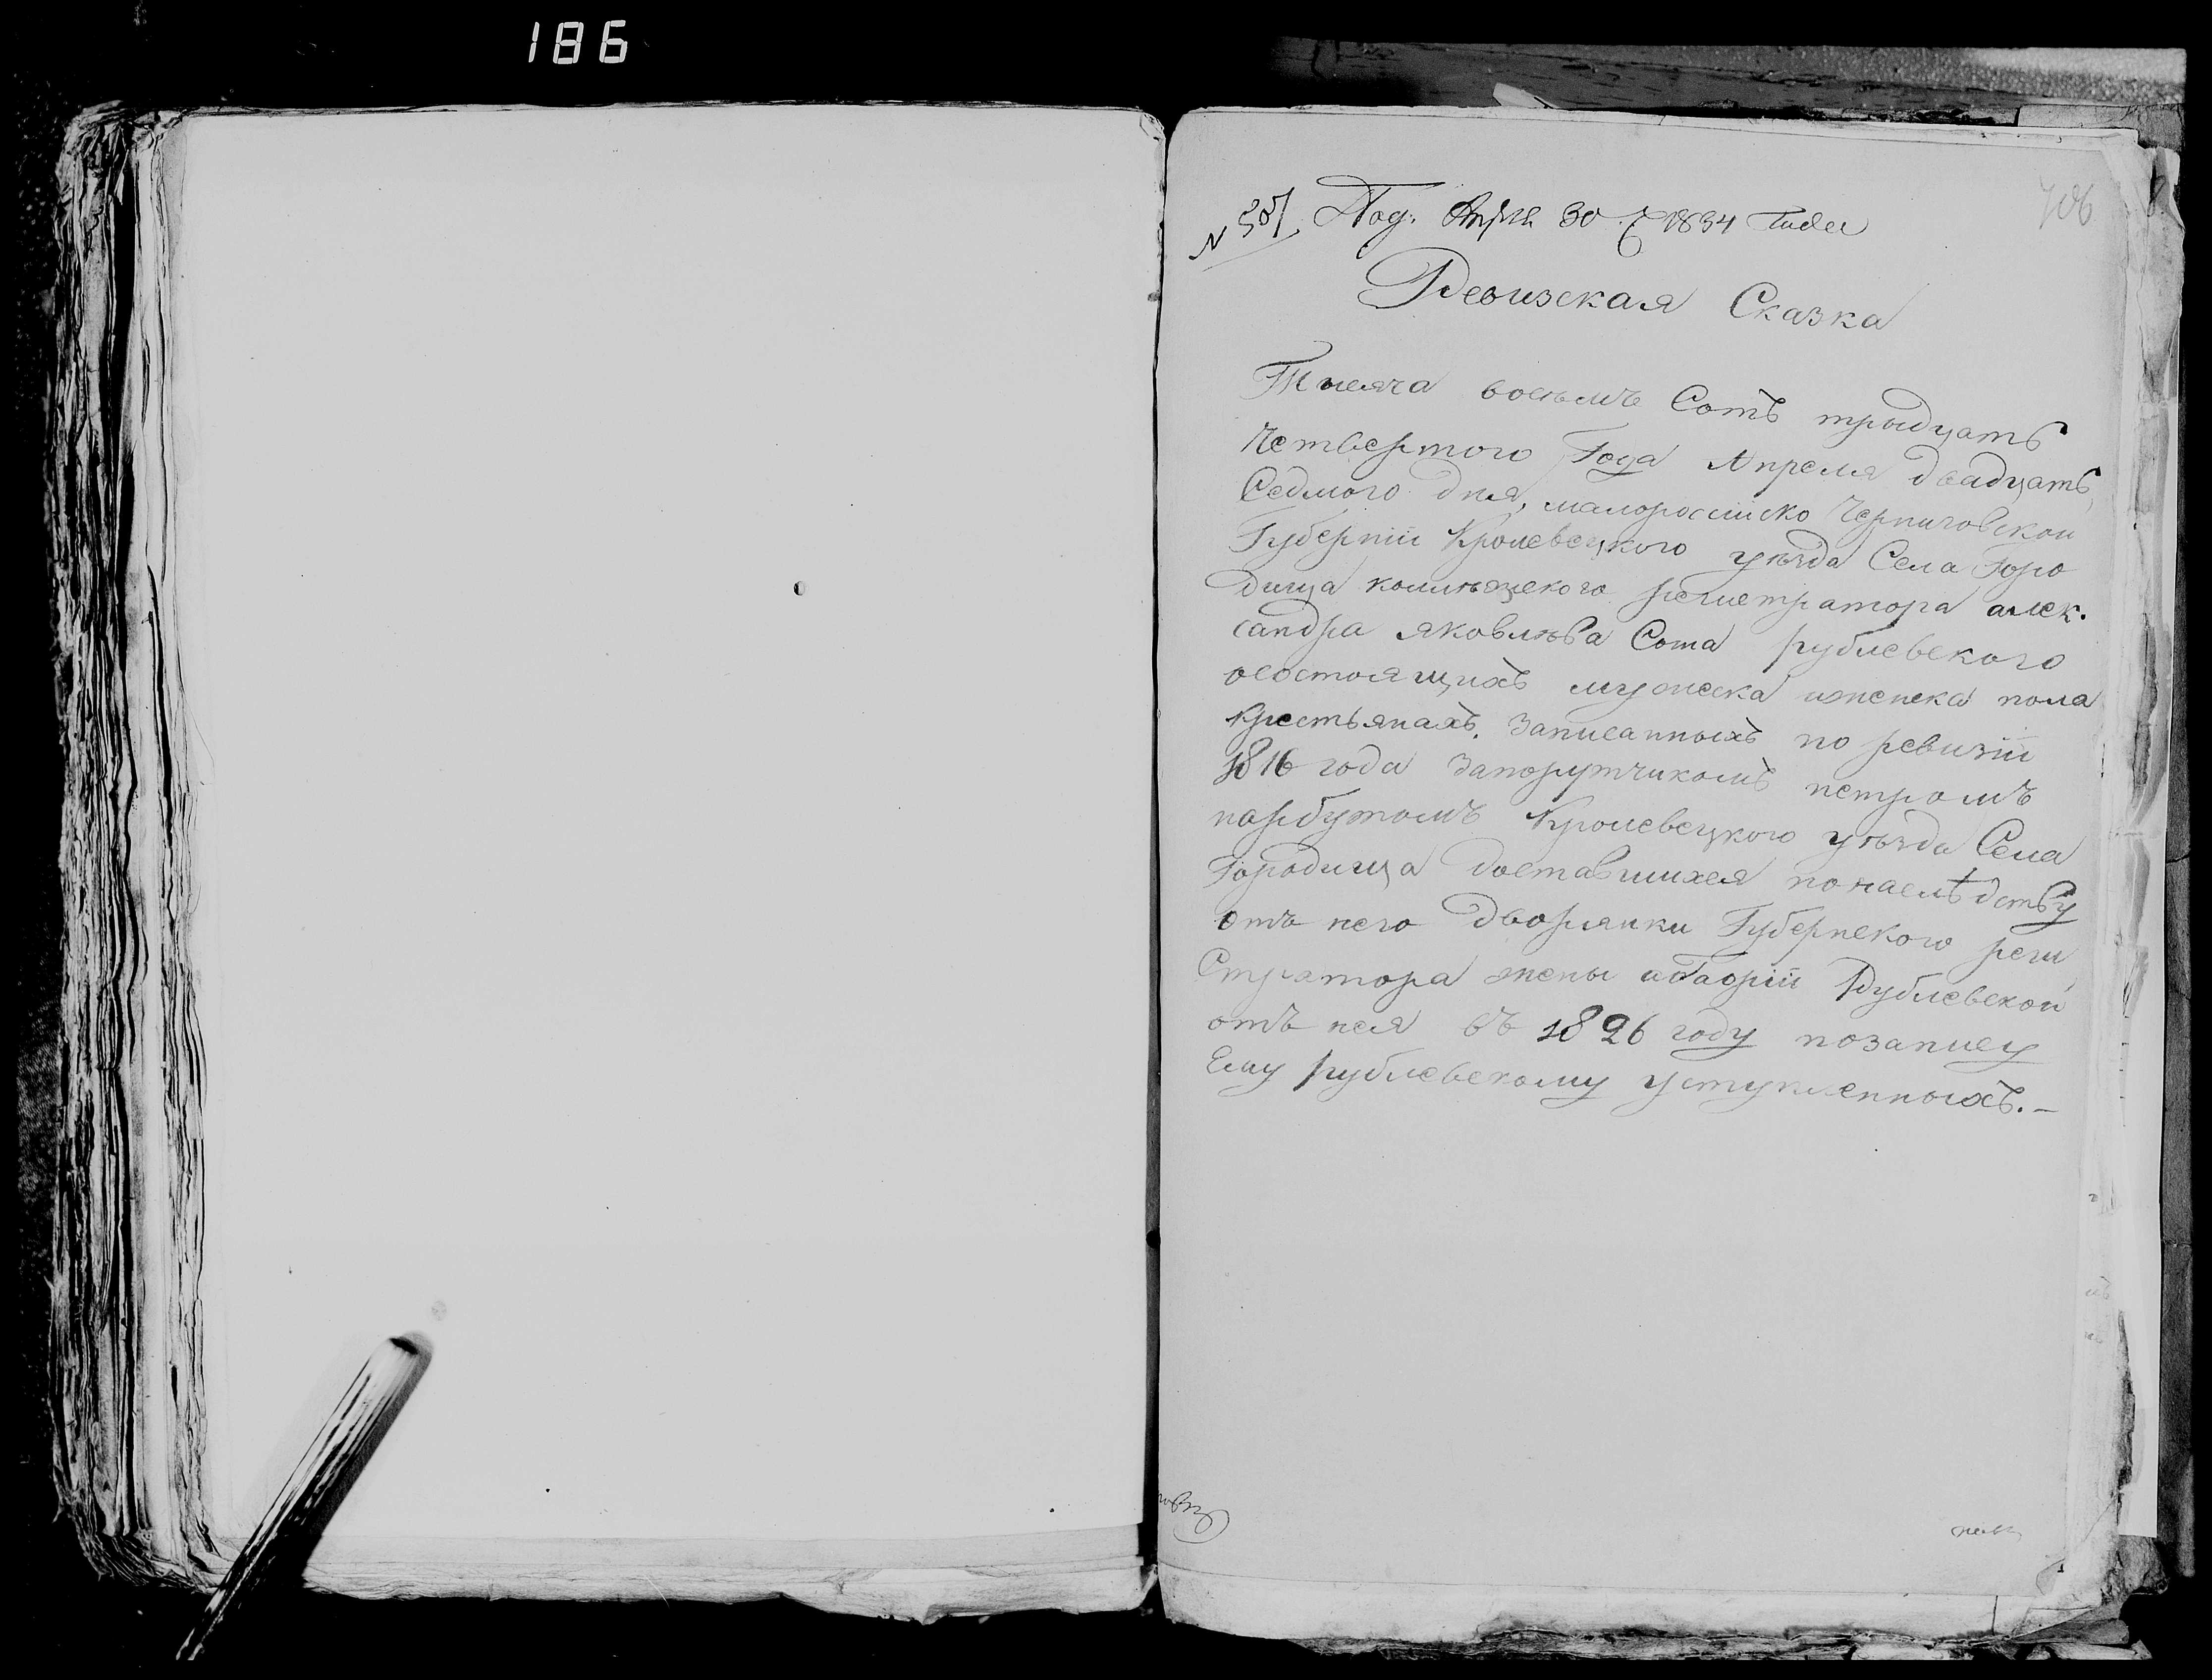 186
706
№ 587. Под. Апрѣл 30 1834 года
Ревизская Сказка
Тысяча восьмъ Сотъ трыдцать
Четвертого Года Апреля двадцать
Седмого дня, малоросийско Черниговской
Губерніи Кролевецкого уѣзда Села Горо
дища колѣжского регистратора алек.
сандра яковлѣва Сота рублевского
осостоящихъ мужеска иженска пола
Крестьянахъ. Записанныхъ по ревизіи
1816 года Запорутчикомъ петромъ
нарбутомъ Кролевецкого уѣзда Села
Городища доставшихся понаслѣдству
отъ него дворянки Губернского реги
Стратора жены Рублевской
отъ нея въ 1826 году позапису
Ему рублевскому уступленныхъ.–